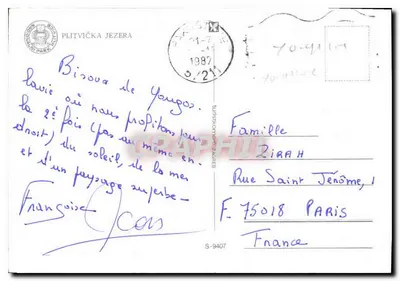 PLITVIČKA JEZERA
Bisous de Yougos-
lavie où nous profitons pour
la 2è fois (pas au même en-
droit) du soleil, de la mer
et d'un paysage superbe -
Françoise
Jean
1987
57211
Famille
ZIRAH
Rue Saint Jérôme, 1
F. 75018 PARIS
France
S-9407